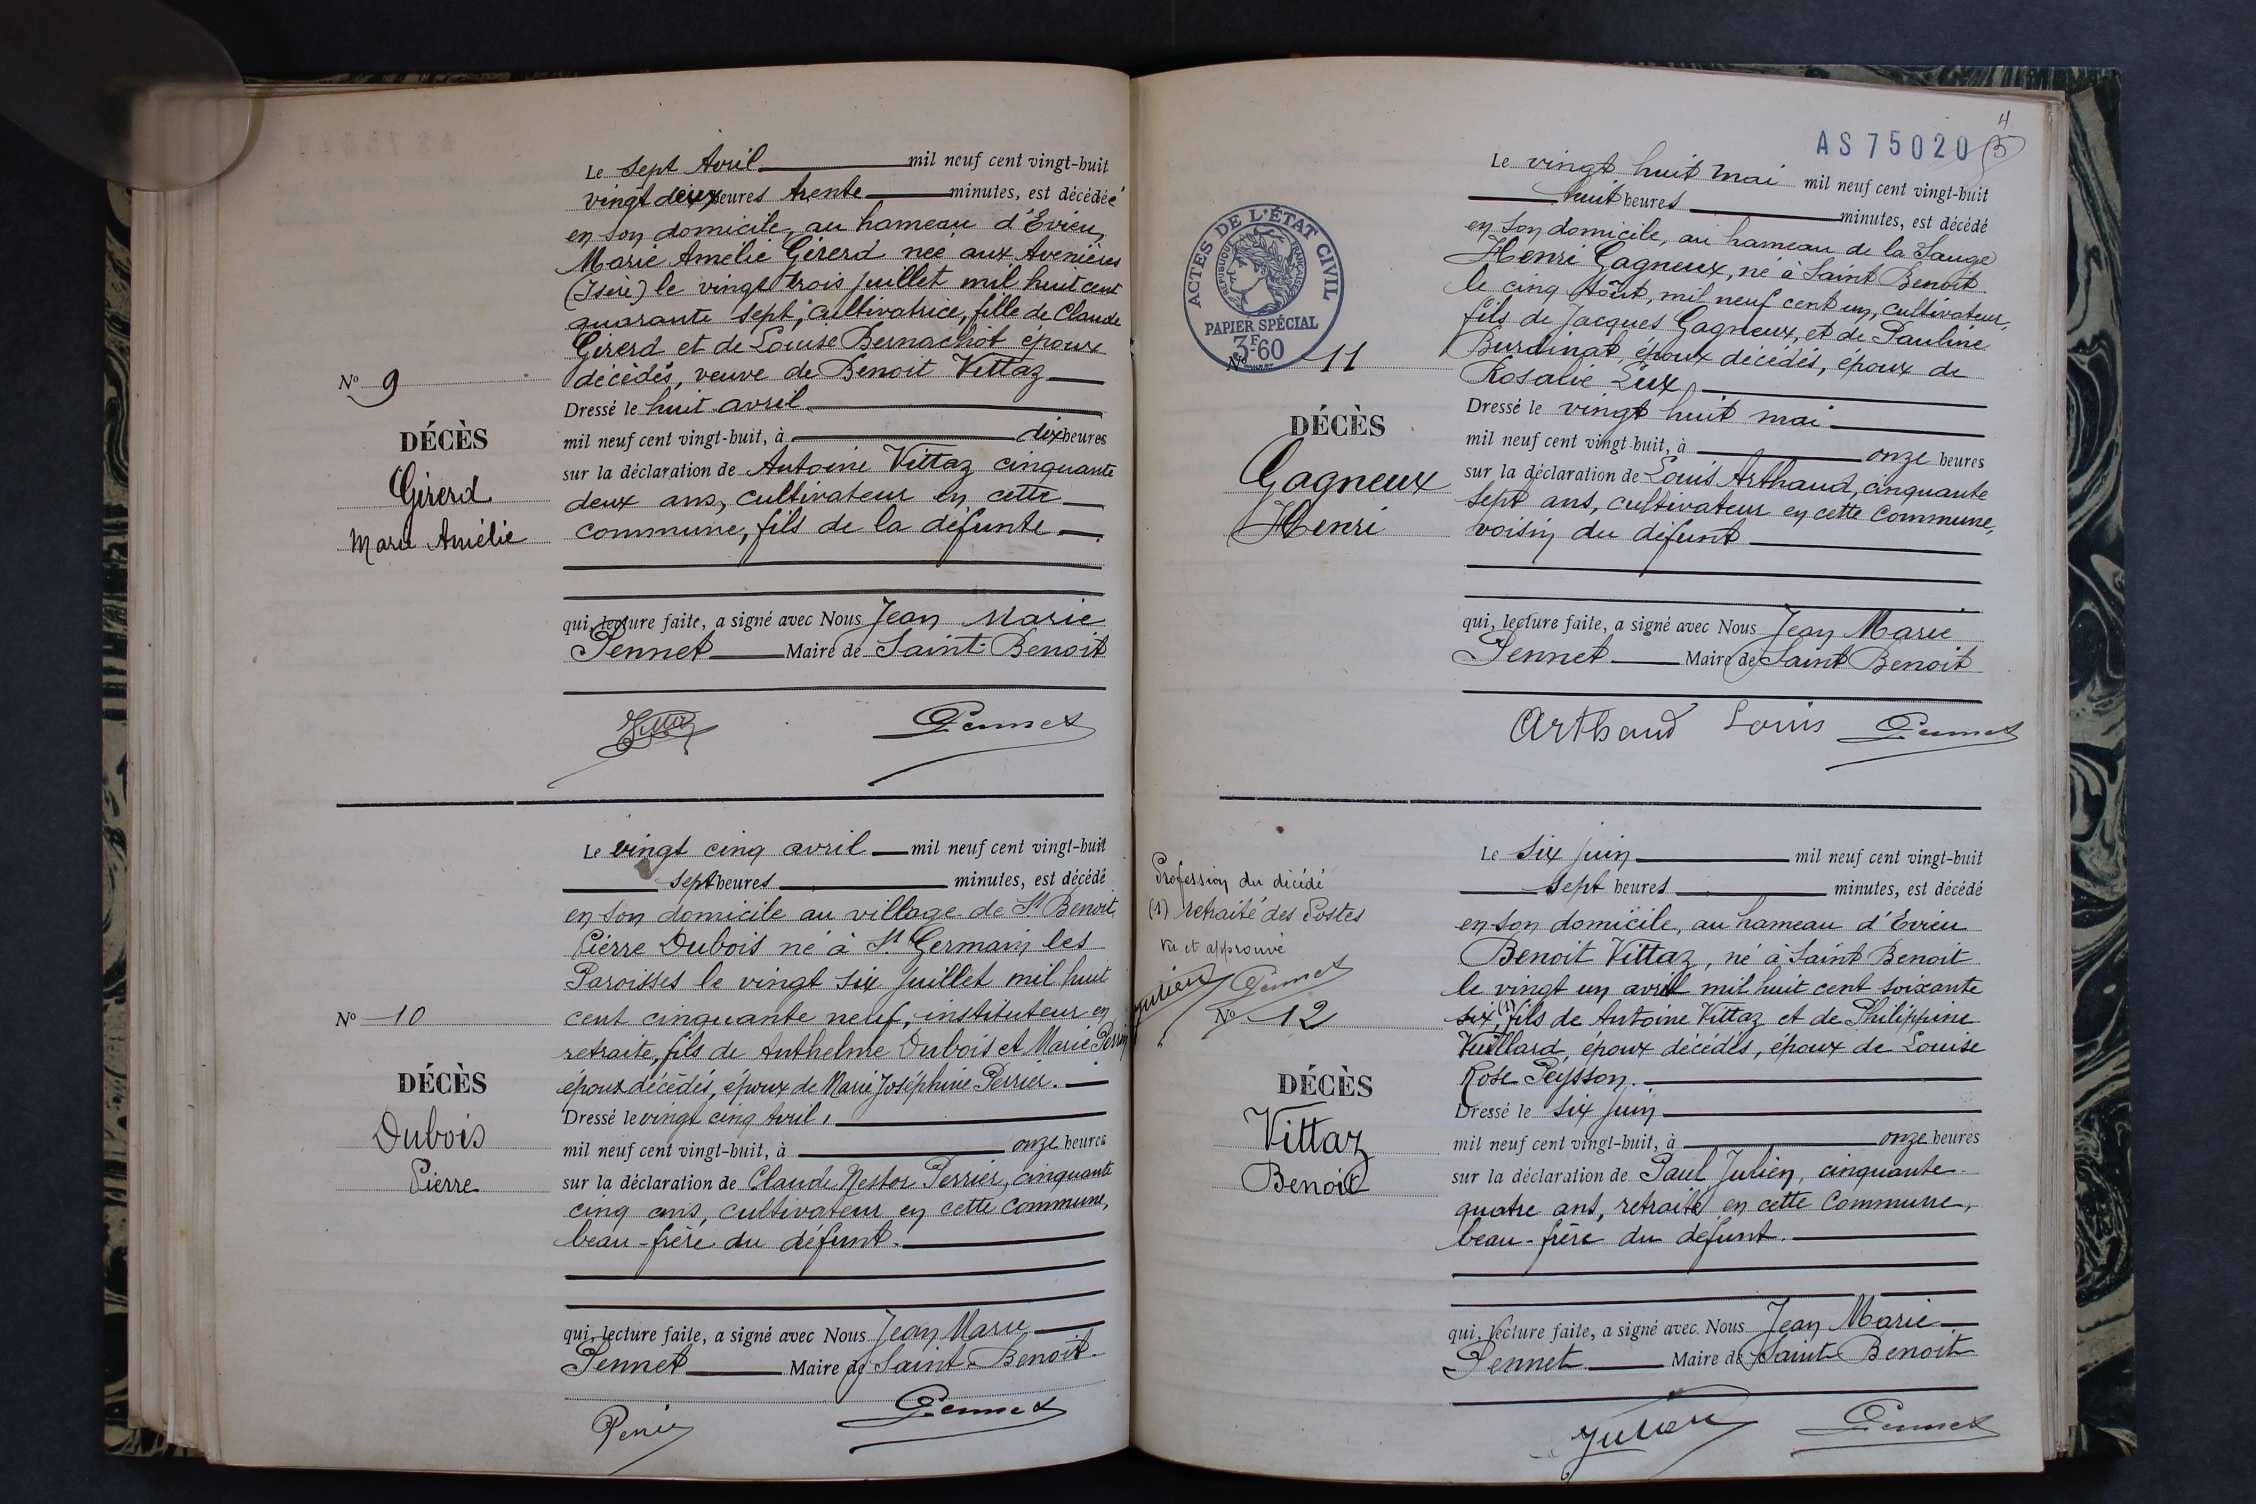 Le sept Avril mil neuf cent vingt-huit
vingt deux heures trente minutes, est décédée
en son domicile, au hameau d'Evieu,
Marie Amélie Gérerd née aux Avenières
(Isère) le vingt trois juillet mil huit cent
quarante sept, cultivatrice, fille de Claude
Gérerd et de Louise Bernachot époux
décédés, veuve de Benoit Vittaz
No 9
Dressé le huit avril
DÉCÈS
mil neuf cent vingt-huit, à dix heures
sur la déclaration de Antoine Vittaz cinquante
Gérerd
deux ans, cultivateur en cette
Marie Amélie
commune, fils de la défunte
qui, lecture faite, a signé avec Nous Jean Marie
Pennet Maire de Saint-Benoit
Pennet
Le vingt cinq avril mil neuf cent vingt-huit
sept heures minutes, est décédé
en son domicile au village de St Benoit
Pierre Dubois né à St Germain les
Paroisses le vingt six juillet mil huit
No 10
cent cinquante neuf, instituteur en
retraite, fils de Anthelme Dubois et Marie Perrin
DÉCÈS
époux décédés, époux de Marie Joséphine Perrier.
Dressé le vingt cinq Avril
Dubois
mil neuf cent vingt-huit, à onze heures
Pierre
sur la déclaration de Claude Nestor Perrier, cinquante
cinq ans, cultivateur en cette commune,
beau-frère du défunt.
qui, lecture faite, a signé avec Nous Jean Marie
Pennet Maire de Saint-Benoit
Perrier Pennet
4
AS 75020 5
Le vingt huit mai mil neuf cent vingt-huit
huit heures minutes, est décédé
en son domicile, au hameau de la Sauge
Henri Gagneux, né à Saint Benoit
le cinq Août, mil neuf cent un, cultivateur,
fils de Jacques Gagneux, et de Pauline
Burdinat, époux décédés, époux de
Rosalie Lux
ACTES DE L'ÉTAT CIVIL
RÉPUBLIQUE FRANÇAISE
PAPIER SPÉCIAL
3F60
No 11
Dressé le vingt huit mai
DÉCÈS
mil neuf cent vingt-huit, à onze heures
Gagneux
sur la déclaration de Louis Arthaud, cinquante
sept ans, cultivateur en cette commune,
Henri
voisin du défunt
qui, lecture faite, a signé avec Nous Jean Marie
Pennet Maire de Saint Benoit
Arthaud Louis Pennet
Le six juin mil neuf cent vingt-huit
Profession du décédé
sept heures minutes, est décédé
(1) retraité des Postes
en son domicile, au hameau d'Evieu
vu et approuvé
Benoit Vittaz, né à Saint Benoit
Julien Pennet
le vingt un avril mil huit cent soixante
No 12
six, (1) fils de Antoine Vittaz et de Philippine
Vuillard, époux décédés, époux de Louise
DÉCÈS
Rose Peysson.
Dressé le six juin
Vittaz
mil neuf cent vingt-huit, à onze heures
Benoit
sur la déclaration de Paul Julien, cinquante
quatre ans, retraité en cette commune,
beau-frère du défunt.
qui, lecture faite, a signé avec Nous Jean Marie
Pennet Maire de Saint-Benoit
Julien Pennet